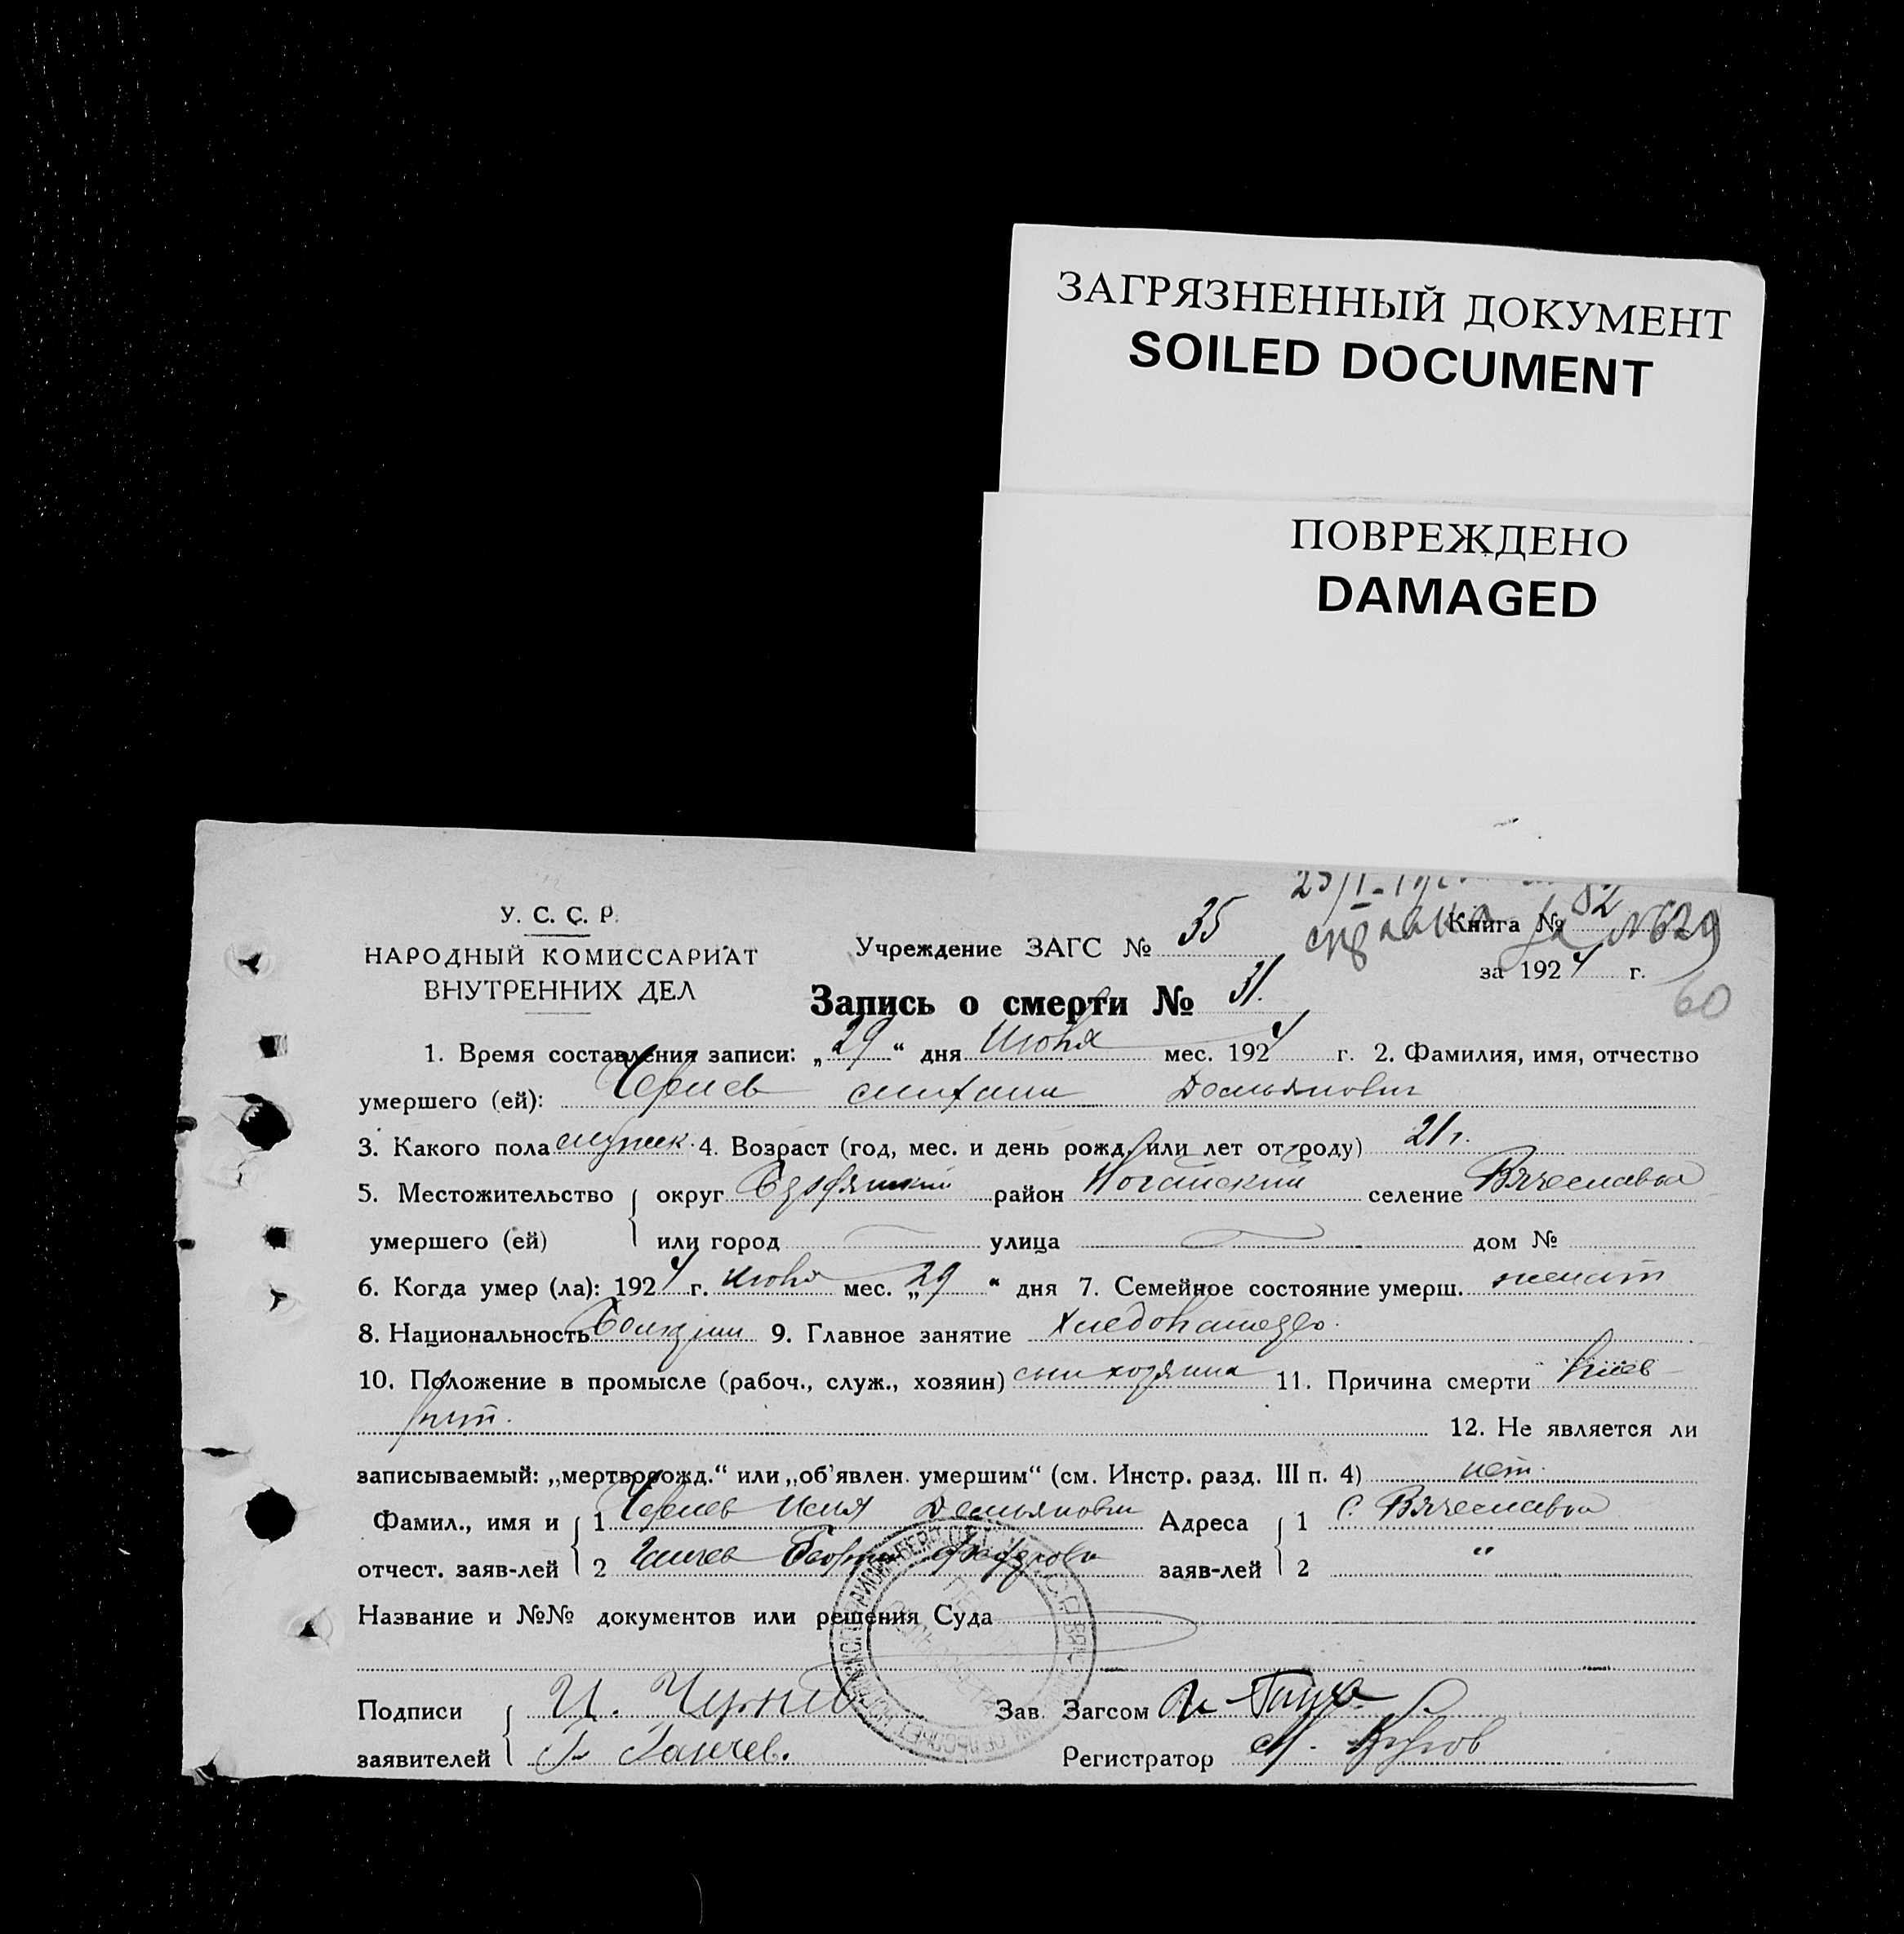 ЗАГРЯЗНЕННЫЙ ДОКУМЕНТ
SOILED DOCUMENT
ПОВРЕЖДЕНО
DAMAGED
У. С. С. Р.
НАРОДНЫЙ КОМИССАРИАТ
ВНУТРЕННИХ ДЕЛ
Учреждение ЗАГС № 35
Книга №
за 1924 г.
60
Запись о смерти № 31.
1. Время составления записи: „29“ дня Июня мес. 1924 г. 2. Фамилия, имя, отчество
умершего (ей): Чернев Демьянович
3. Какого пола мужск. 4. Возраст (год, мес. и день рожд. или лет от роду) 21 г.
5. Местожительство округ Бердянский район Ногайский селение Вячеславка
умершего (ей) или город улица дом №
6. Когда умер (ла): 1924 г. Июня мес. „29“ дня 7. Семейное состояние умерш. женат
8. Национальность Болгарин 9. Главное занятие Хлебопашество.
10. Положение в промысле (рабоч., служ., хозяин) сын хозяина 11. Причина смерти Плев-
рит. 12. Не является ли
записываемый: „мертворожд.“ или „об’явлен. умершим“ (см. Инстр. разд. III п. 4) нет.
Фамил., имя и 1 Чернев Илья Демьянович Адреса 1 С. Вячеславка
отчест. заяв-лей 2 Ганчев Георгий заяв-лей 2 "
Название и №№ документов или решения Суда
Подписи И. Чернев Зав. Загсом
заявителей Г. Ганчев. Регистратор М.